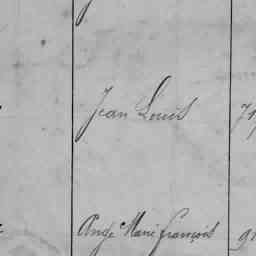 Jean Louis
Ange Marie François